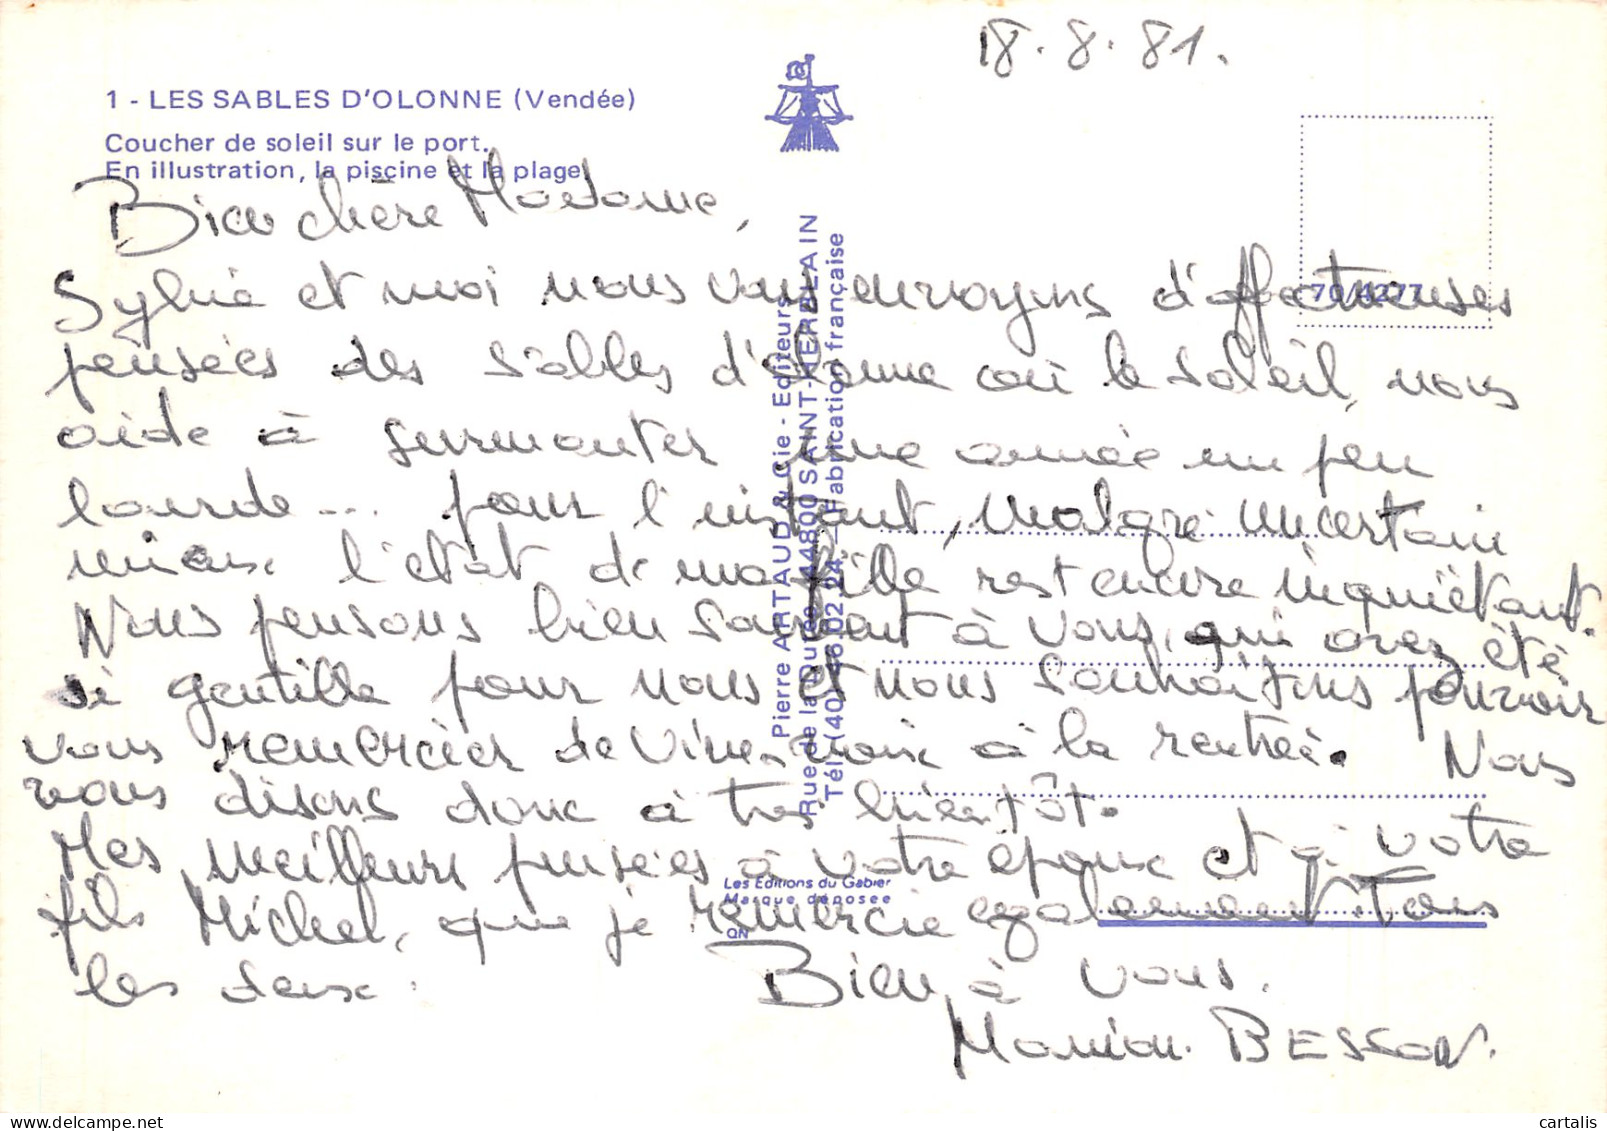 18.8.81.
1 - LES SABLES D'OLONNE (Vendée)
Coucher de soleil sur le port.
En illustration, la piscine et la plage
Bien chère Madame,
Sylvie et moi nous vous envoyons d'affectueuses
pensées des Sables d'olonne où le soleil, nous
aide à surmonter une année un peu
lourde... pour l'instant, malgré un certain
mieux l'état de ma fille rest encore inquiétant.
Nous pensons bien souvent à vous, qui avez été
si gentille pour nous et nous souhaitons pouvoir
vous remercier de vive voix à la rentrée. Nous
vous disons donc à très bientôt.
Mes meilleurs pensées à votre époux et à votre
fils Michel, que je remercie egalement Tous
les deux.
Bien à vous.
Marion BESSON.
Pierre ARTAUD & Cie - Editeurs
Rue de la Durée 44800 SAINT-HERBLAIN
Tél. (40) 46.02.24 - Fabrication française
70/4277
Les Editions du Gabier
Marque déposée
QN
cartalis